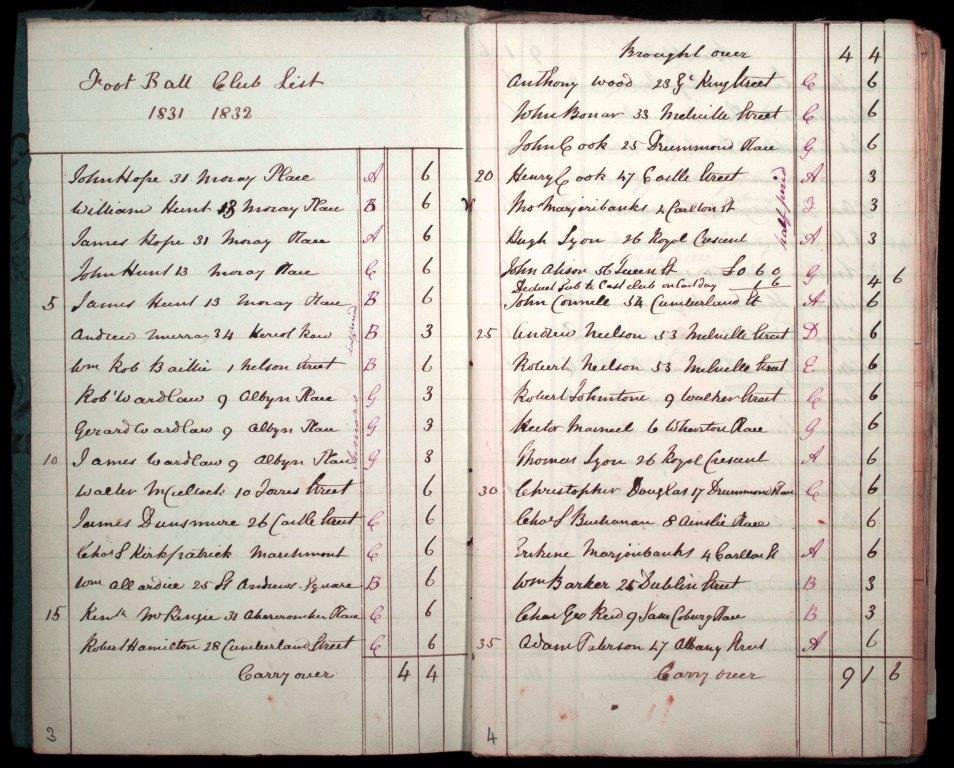 Foot Ball Club List
1831 1832
John Hope 31 Moray Place A 6
William Hunt 13 Moray Place B 6
James Hope 31 Moray Place A 6
John Hunt 13 Moray Place C 6
5 James Hunt 13 Moray Place B 6
Andrew Murray 34 Heriot Row B 3
Wm Rob Baillie 1 Nelson Street B 6
Robt Wardlaw 9 Albyn Place G 3
Gerard Wardlaw 9 Albyn Place G 3
10 James Wardlaw 9 Albyn Place G 3
Walter McCulloch 10 Torres Street 6
James Dunsmure 26 Castle Street C 6
Chas S Kirkpatrick Marchmont C 6
Wm Allardice 25 St Andrew Square B 6
15 Kenth McKenzie 31 Abercrombie Place C 6
Robert Hamilton 28 Cumberland Street C 6
Carry over 4 4
3
Brought over 4 4
Anthony Wood 23 Gt King Street C 6
John Bonar 33 Melville Street C 6
John Cook 25 Drummond Place G 6
20 Henry Cook 47 Castle Street A 3
Marjoribanks 4 Carlton St F 3
half paid
Hugh Lyon 26 Royal Crescent A 3
John Alison 56 Queen St £0 6 0 G
Deduct Sub to Cast club on last day 1 6 4 6
John Connell 54 Cumberland St A 6
25 Andrew Neilson 53 Melville Street D 6
Robert Neilson 53 Melville Street E 6
Robert Johnstone 9 Walker Street C 6
Hector 6 Wharton Place G 6
Thomas Lyon 26 Royal Crescent A 6
30 Christopher Douglas 17 Drummond Place C 6
Chas S Buchanan 8 Ainslie Place 6
Erskine Marjoribanks 4 Carlton St A 6
Wm Barker 25 Dublin Street B 3
Chas Geo Reid 9 Saxe Coburg Place B 3
35 Adam Paterson 47 Albany Street A 6
Carry over 9 1 6
4